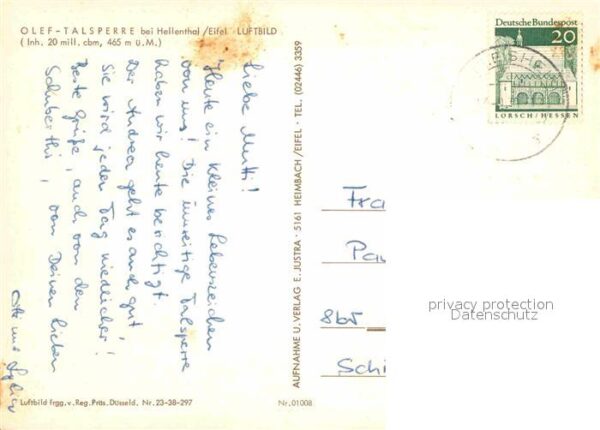 OLEF-TALSPERRE bei Hellenthal/Eifel · LUFTBILD
(Inh. 20 mill. cbm, 465 m ü.M.)
Liebe Mutti!
Heute ein kleines Lebenszeichen
von uns! Die umseitige Talsperre
haben wir heute besichtigt.
Der Andrea geht es auch gut,
Sie wird jeden Tag niedlicher!
Beste Grüße, auch von den
von Deinen lieben
AUFNAHME U. VERLAG E. JUSTRA · 5161 HEIMBACH/EIFEL · TEL. (02446) 3359
Deutsche Bundespost
20
LORSCH/HESSEN
Fra
Pa
Schi
privacy protection
Datenschutz
Luftbild frgg. v. Reg. Präs. Düsseld. Nr. 23-38-297
Nr. 01008